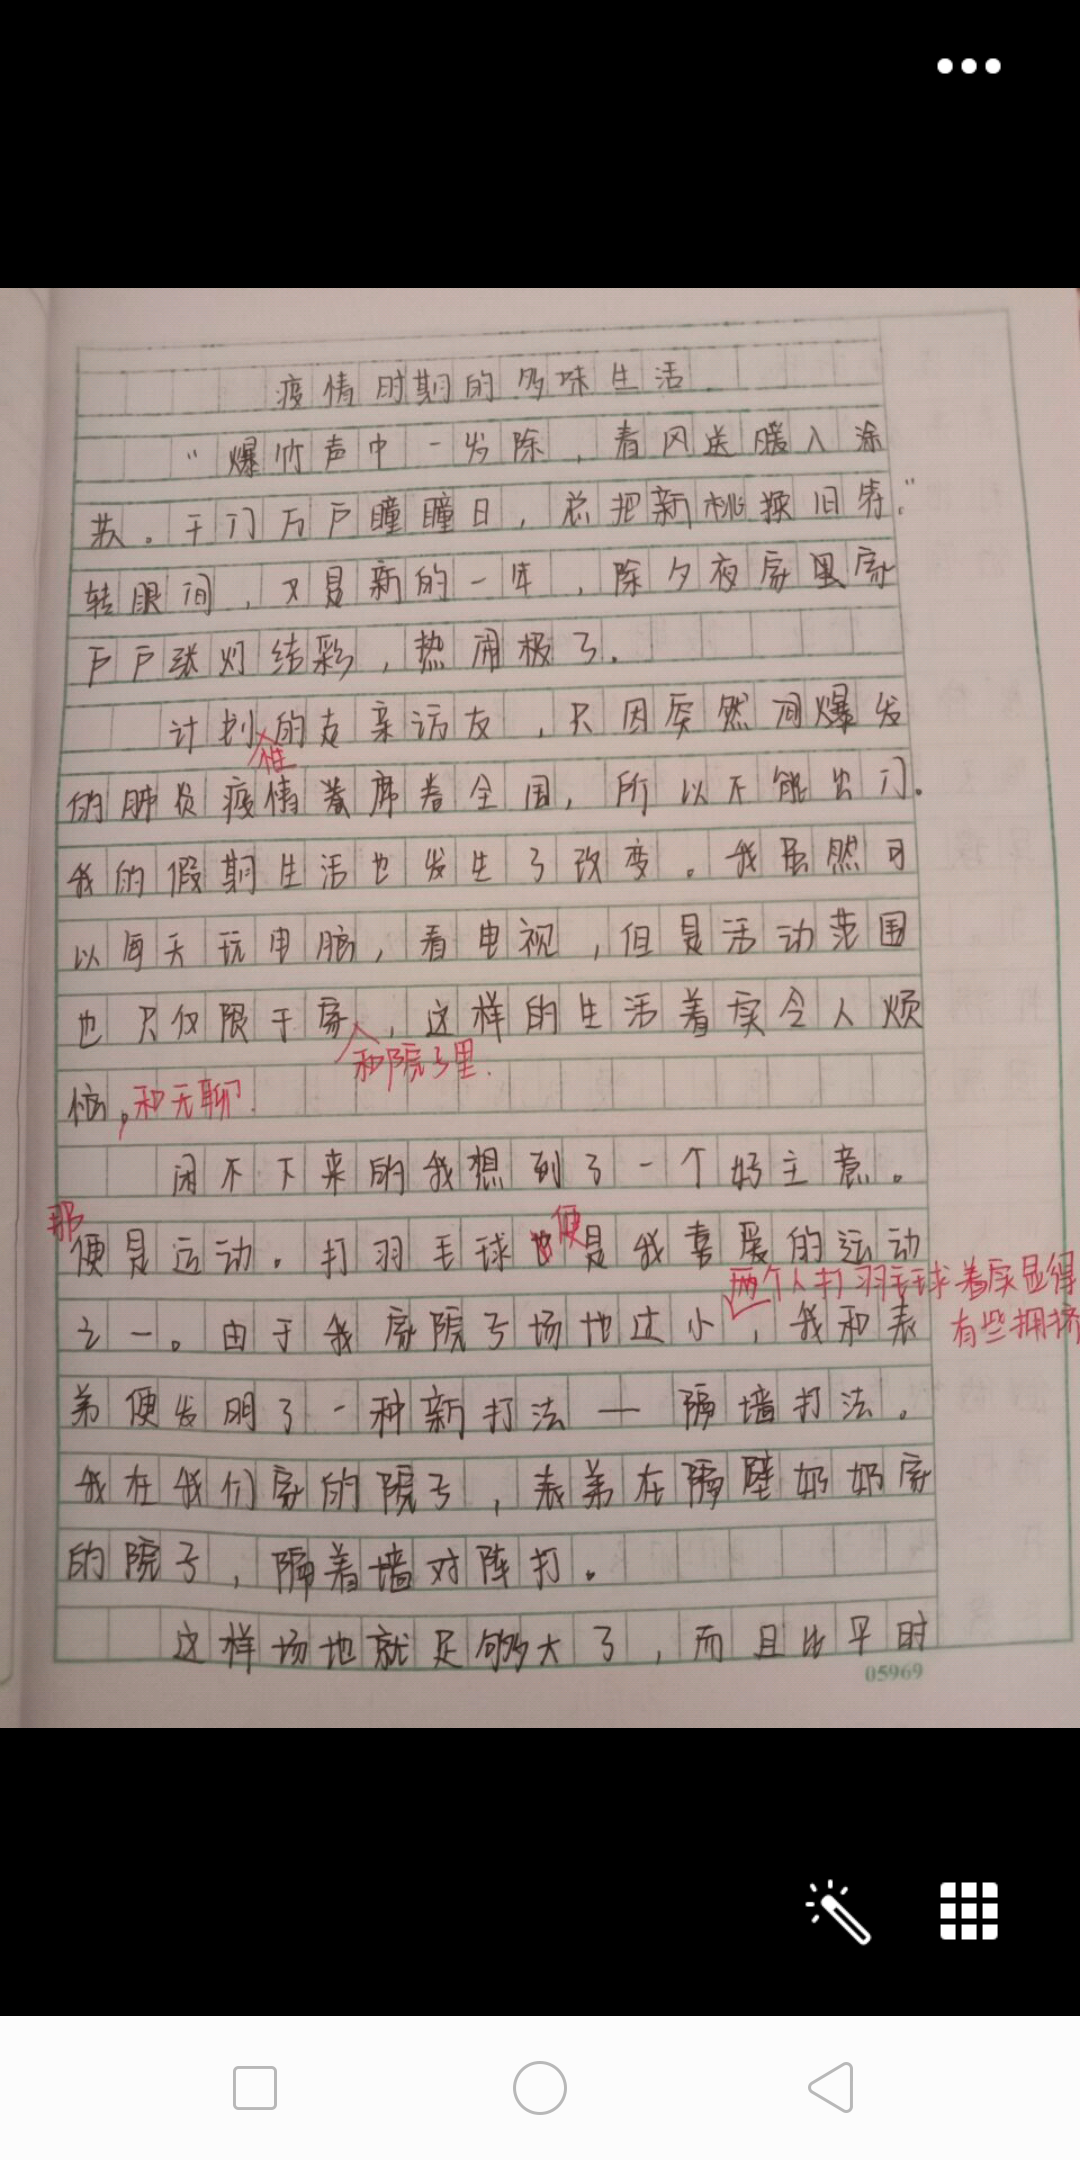 疫情时期的多味生活
“爆竹声中一岁除，春风送暖入涂
苏。千门万户瞳瞳日，总把新桃换旧符.”
转眼间，又是新的一年，除夕夜家里家
户户张灯结彩，热闹极了.
计划的走亲访友，只因突然间爆发
在
的肺炎疫情席卷全国，所以不能出门.
我的假期生活也发生了改变。我虽然可
以每天玩电脑，看电视，但是活动范围
也只仅限于家，这样的生活着实令人烦
和院子里.
恼，和无聊.
闲不下来的我想到了一个好主意。
那便是运动。打羽毛球便是我喜爱的运动
两个人打羽毛球着实显得
有些拥挤
之一。由于我家院子场地过小，我和表
弟便发明了一种新打法—隔墙打法。
我在我们家的院子，表弟在隔壁奶奶家
的院子，隔着墙对阵打。
这样场地就足够大了，而且比平时
05969